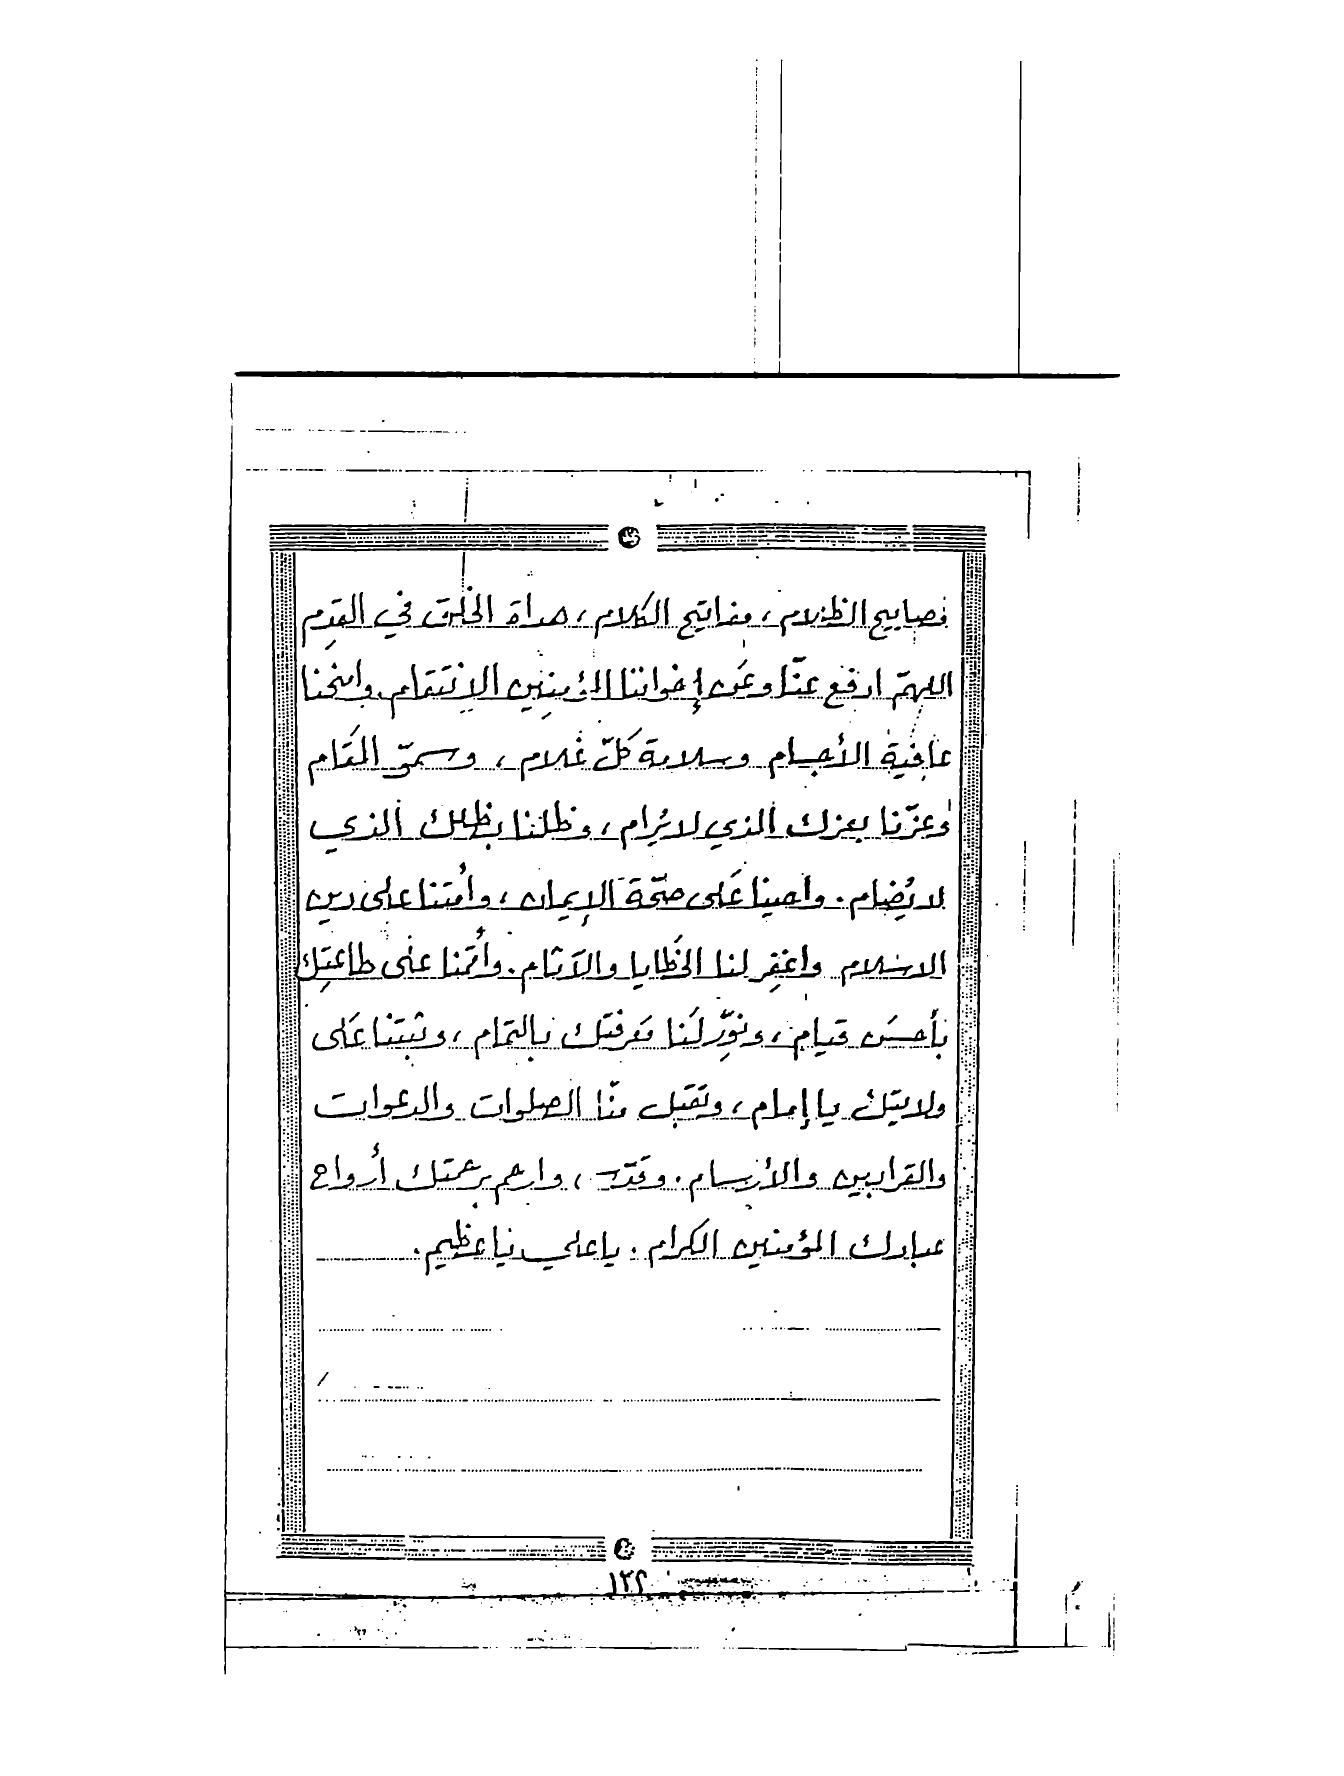 مصابيح الظلام، مفاتيح الكلام، هداة الخلق في القِدَم
اللهمّ ادفع عنّا وعَن إخواننا المؤمِنين الانْتَقام. وامنحنا
عافية الأجسام وسلامة كلّ غلام، وسموّ المقَام
وعزّنا بعزك الذي لا يُرام، وظلنا بظلك الذي
لا يُضام. واحينا عَلى صحّة الإيمان، وأمتنا على دين
الاسلام واغفِر لنا الخطَايا والآثام. وأقمنا على طاعتِك
بأحسَن قيام، ونوِّر لَنا مَعرفتك بالتمام، وثبتنا عَلى
ولايتك يا إمام، وتقبل منّا الصلوات والدعوات
والقرابين والأرسام. وقدّس، وارحم برحمتك أرواح
عبادك المؤمنين الكرام. يا علي يا عظيم.
١٢٢